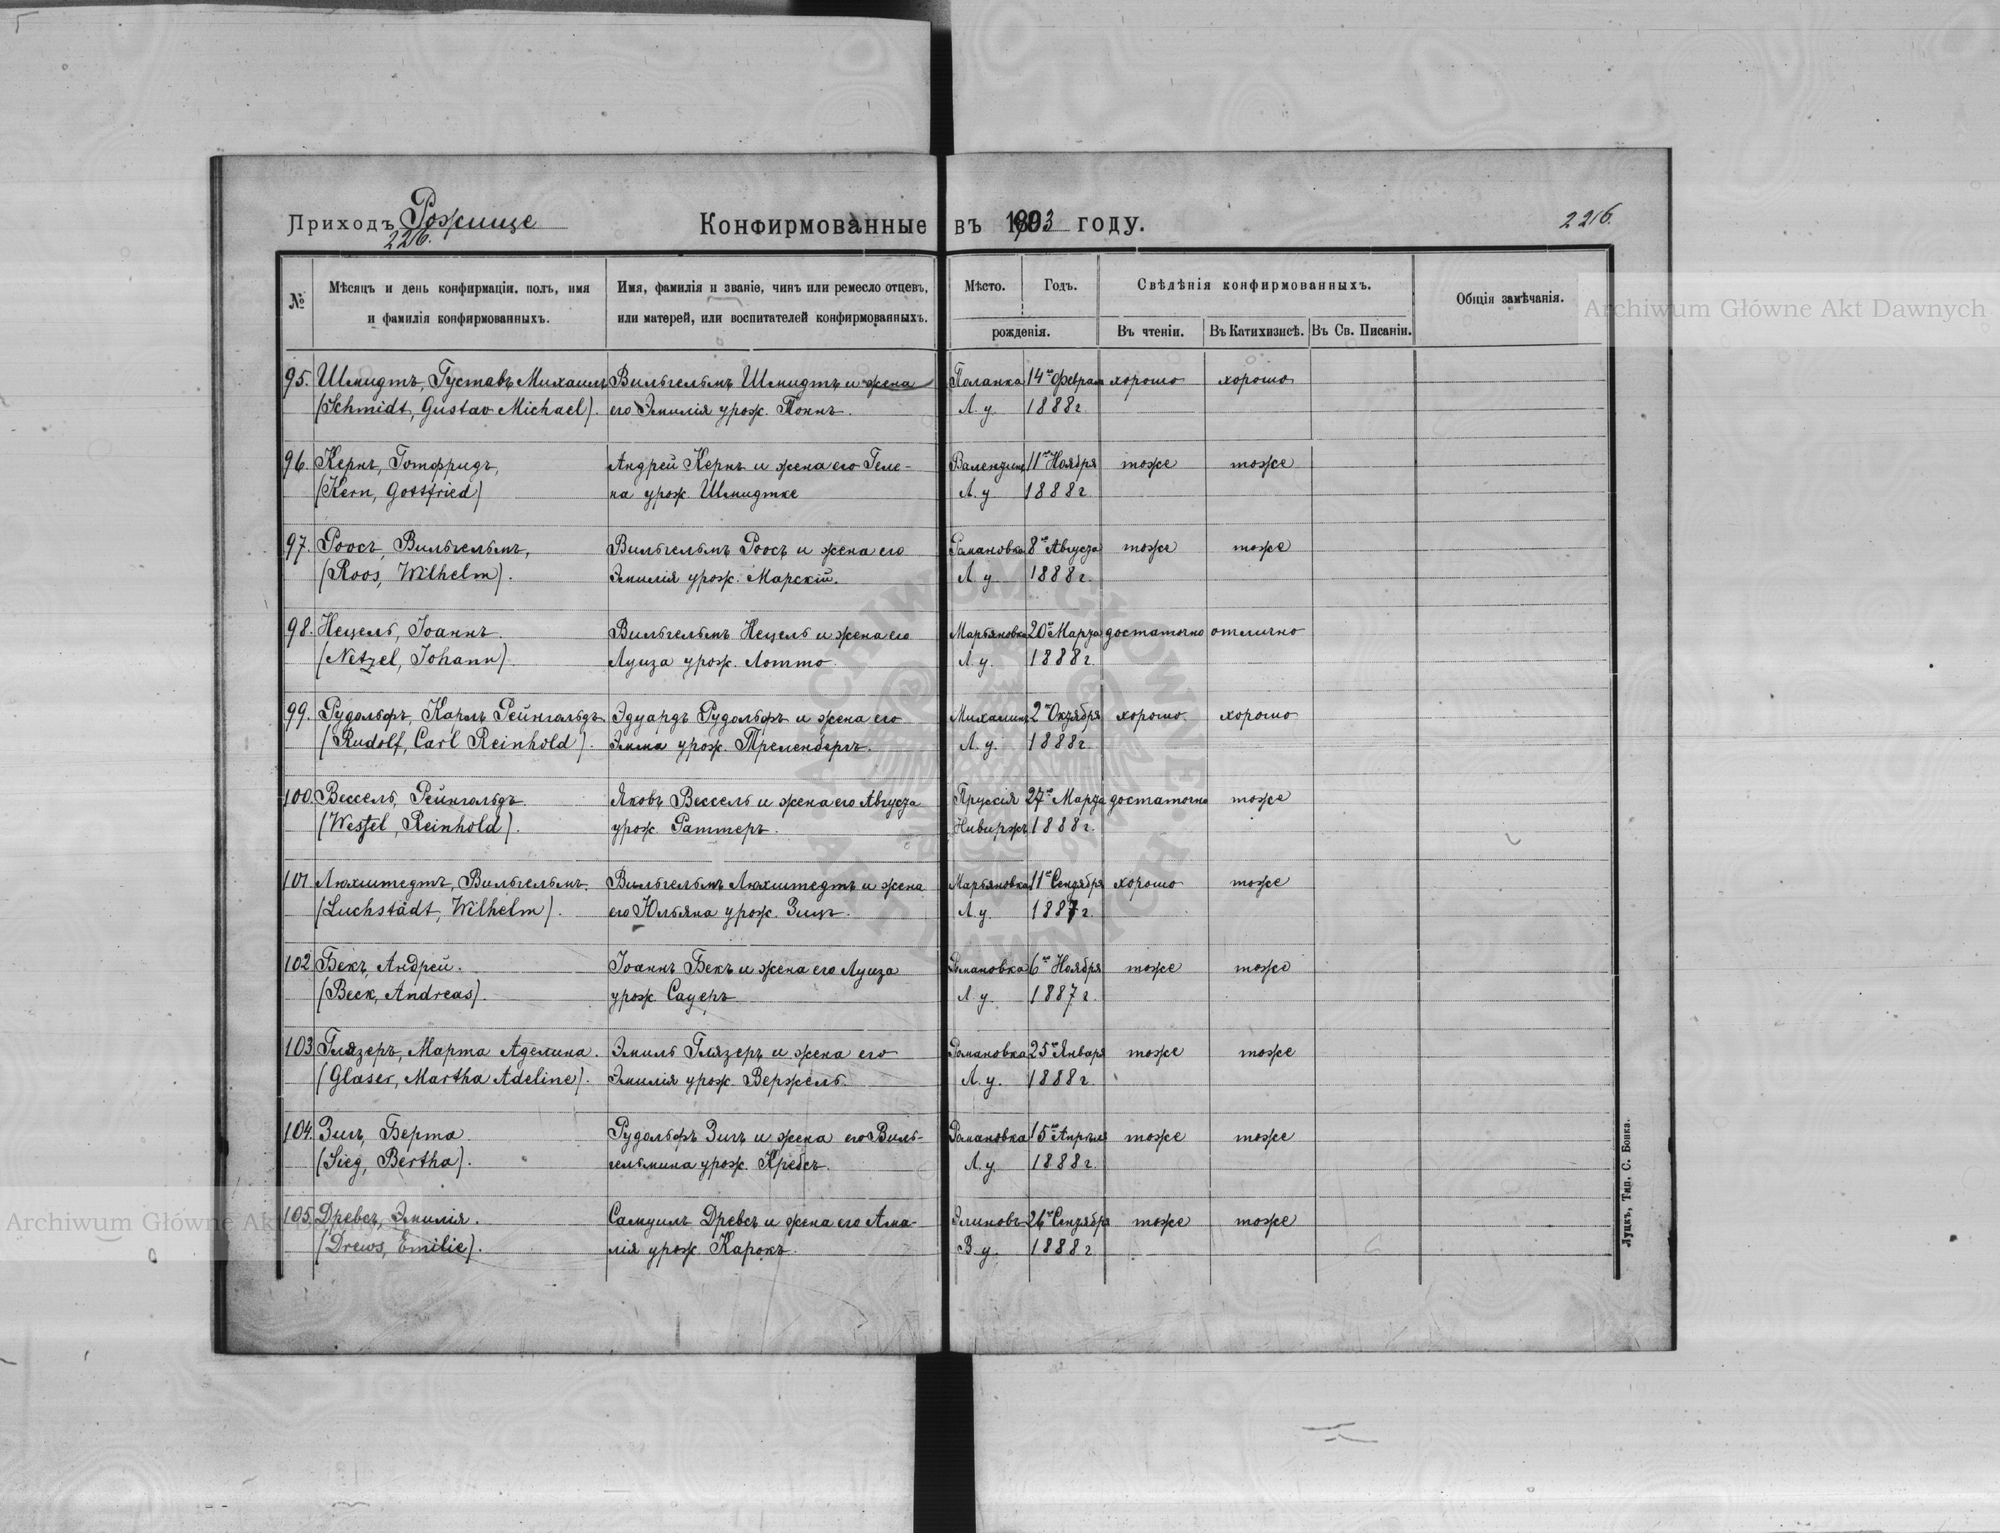 Приходъ Рожище
226.
Конфирмованные въ 1903 году.
226.
№
Мѣсяцъ и день конфирмаціи, полъ, имя
и фамилія конфирмованныхъ.
Имя, фамилія и званіе, чинъ или ремесло отцевъ,
или матерей, или воспитателей конфирмованныхъ.
Мѣсто.
Годъ.
рожденія.
Свѣдѣнія конфирмованныхъ.
Въ чтеніи.
Въ Катихизисѣ.
Въ Св. Писаніи.
Общія замѣчанія.
Archiwum Główne Akt Dawnych
95. Шмидтъ, Густавъ Михаилъ Вильгельмъ Шмидтъ и жена Поланка 14го Февраля хорошо хорошо
(Schmidt, Gustav Michael). его Эмилія урож. Поннъ. Л. у. 1888 г.
96. Кернъ, Готфридъ, Андрей Кернъ и жена его Геле- 11го Ноября тоже тоже
(Kern, Gottfried) на урож. Шмидтке Л. у. 1888 г.
97. Роосъ, Вильгельмъ, Вильгельмъ Роосъ и жена его Романовка 8го Августа тоже тоже
(Roos, Wilhelm). Эмилія урож. Марскій. Л. у. 1888 г.
98. Нецель, Іоаннъ. Вильгельмъ Нецель и жена его Марьяновка 20го Марта достаточно отлично
(Netzel, Johann). Луиза урож. Лотто. Л. у. 1888 г.
99. Рудольфъ, Карлъ Рейнгольдъ. Эдуардъ Рудольфъ и жена его Михалинъ 2го Октября хорошо хорошо
(Rudolf, Carl Reinhold). Эмма урож. Тремендергъ. Л. у. 1888 г.
100. Вессель, Рейнгольдъ. Яковъ Вессель и жена его Августа Пруссія 27го Марта достаточно тоже
(Wessel, Reinhold). урож. Раттеръ. 1888 г.
101. Люхштедтъ, Вильгельмъ. Вильгельмъ Люхштедтъ и жена Марьяновка 11го Сентября хорошо тоже
(Luchstädt, Wilhelm). его Юльяна урож. Зицъ. Л. у. 1887 г.
102. Бекъ, Андрей. Іоаннъ Бекъ и жена его Луиза Романовка 6го Ноября тоже тоже
(Beck, Andreas). урож. Сауеръ Л. у. 1887 г.
103. Глязеръ, Марта Аделина. Эмиль Глязеръ и жена его Романовка 25го Января тоже тоже
(Glaser, Martha Adeline). Эмилія урож. Вержель. Л. у. 1888 г.
104. Зигъ, Берта. Рудольфъ Зигъ и жена его Виль- Романовка 15го Апрѣля тоже тоже
(Sieg, Bertha). гельмина урож. Кребсъ. Л. у. 1888 г.
105. Древсъ, Эмилія. Самуилъ Древсъ и жена его Ама- Элиновъ 26го Сентября тоже тоже
(Drews, Emilie). лія урож. Карокъ. В. у. 1888 г.
Луцкъ, Тип. С. Бонка.
Archiwum Główne Akt Dawnych
ARCHIWUM GŁÓWNE AKT DAWNYCH